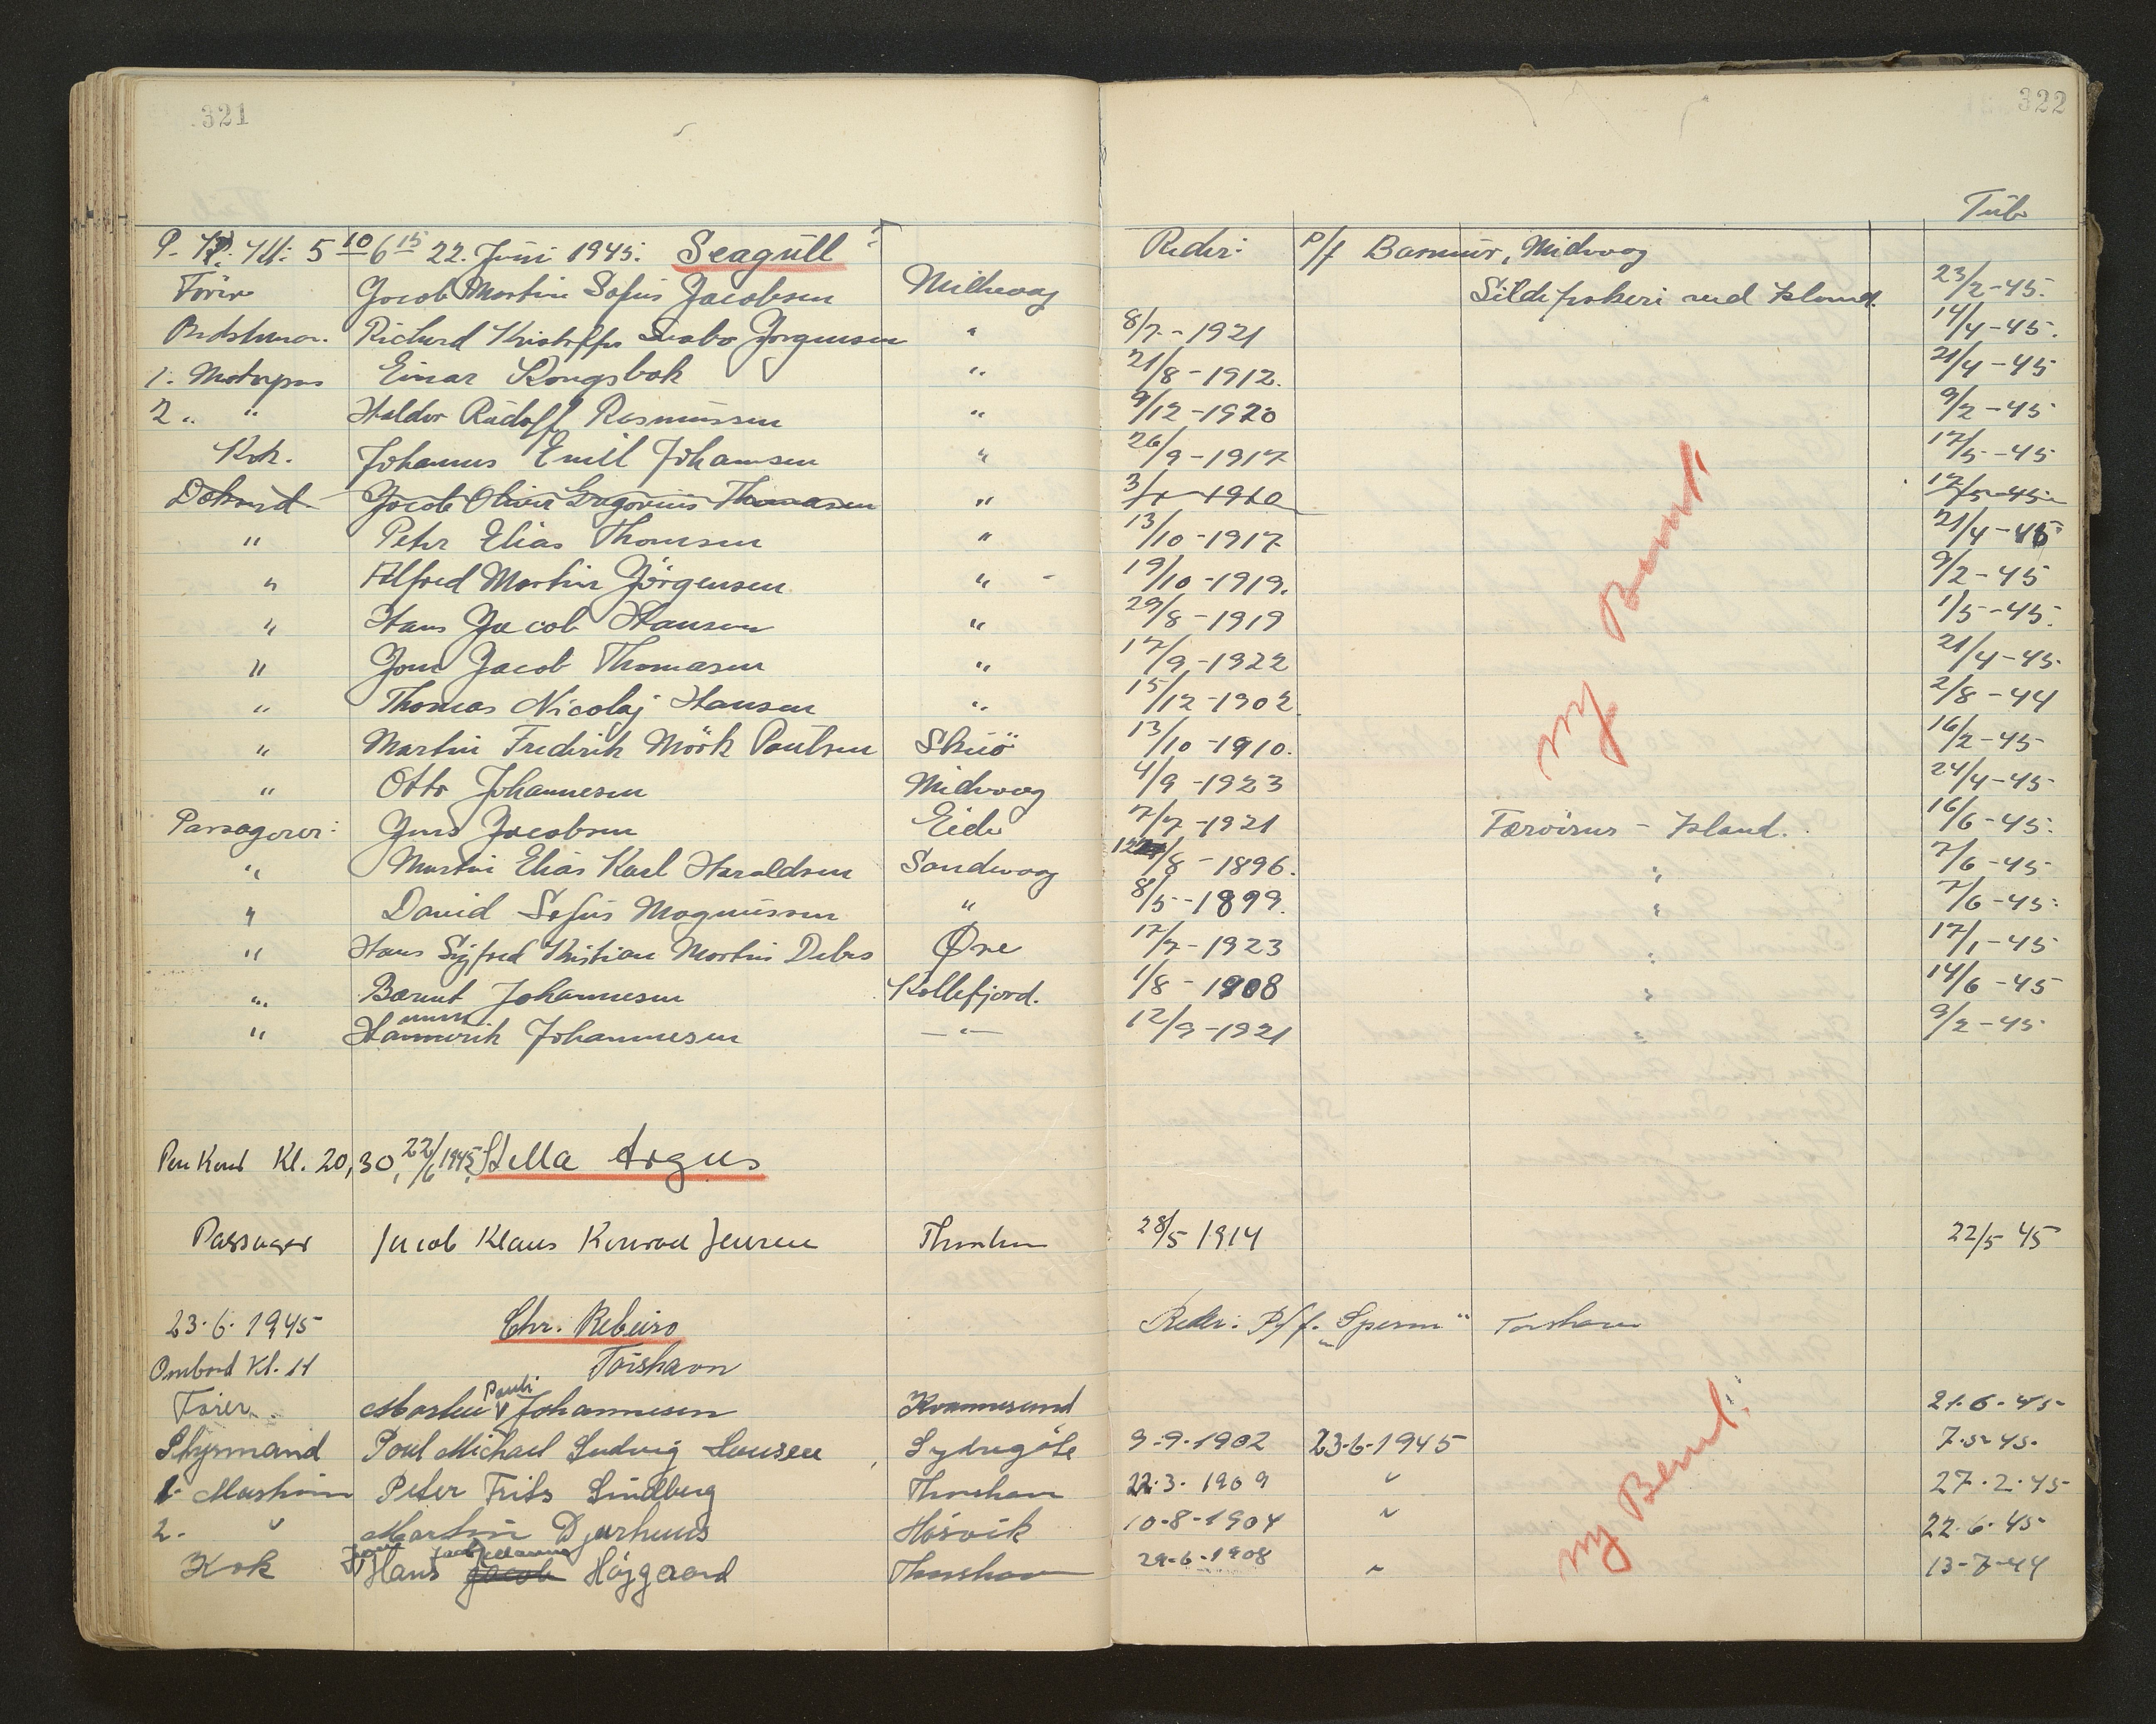 321
322
Tub
P. K. Kl. 5 10 6 15 22. Juni 1945: Seagull Rederi: P/f Barmur, Midvaag
Förer Jacob Martin Sofus Jacobsen Midvaag Sildefiskeri ved Island. 23/2-45.
Bedstman. Richard Kristoffer Seabo Jörgensen " 8/7-1921 14/4-45.
1. Motorpas Einar Kongsbak " 21/8-1912. 21/4-45
2. " Haldor Rudolf Rasmussen " 9/12-1920 9/2-45
Kok. Johannes Emil Johansen " 26/9-1917 17/5-45
Doksmd Jacob Oliver Gregorius Thomasen " 3/ -1920 17/5-45
" Peter Elias Thomsen " 13/10-1917 21/4-45
" Alfred Martin Jörgensen " 19/10-1919. 9/2-45
" Hans Jacob Hansen " 29/8-1919 1/5-45.
" Jens Jacob Thomasen " 17/9-1922 21/4-45.
" Thomas Nicolaj Hansen " 15/12-1902. 2/8-44
" Martin Frederik Möök Poulsen Skuö 13/10-1910. 16/2-45
" Otto Johannesen Midvaag 4/9-1923 24/4-45
ny Bemt.
Passagerer: Jens Jacobsen Eide 7/7-1921 Færöerne - Island. 16/6-45.
" Martin Elias Karl Haraldsen Sandvaag 12/8-1896. " 7/6-45
" David Sofus Magnussen " 8/5-1899. " 7/6-45.
" Hans Sigfred Kristian Martin Debes Øre 17/7-1923 " 17/1-45
" Bærent Johannesen Kollefjord. 1/8-1908 " 14/6-45
" Hammerik Johannesen -"- 12/9-1921 " 9/2-45
Per Kent Kl. 20,30, 22/6 1945, Stella Argus
Passager Jacob Klaus Konrad Jensen Thorshavn 28/5 1914 22/5 45
23.6.1945 Chr. Ribeiro Reder: P/f. "Sperm" Torshavn
Ombord Kl. 11 Torshavn
Förer Martin Pauli Johannesen Kvannesund 21.6.45-
Styrmand Poul Michael Ludvig Hansen Sydrugöte 9.9.1902 23.6.1945 7.5.45.
1. Maskin Peter Frits Lindberg Thorshavn 22.3.1909 " 27.2.45
2. " Martin Djurhuus Hósvik 10-8-1904 " 22.6.45
Kok Hans Jacob Højgaard Thorshavn 29-6-1908 " 13-7-44
ny Bemt.